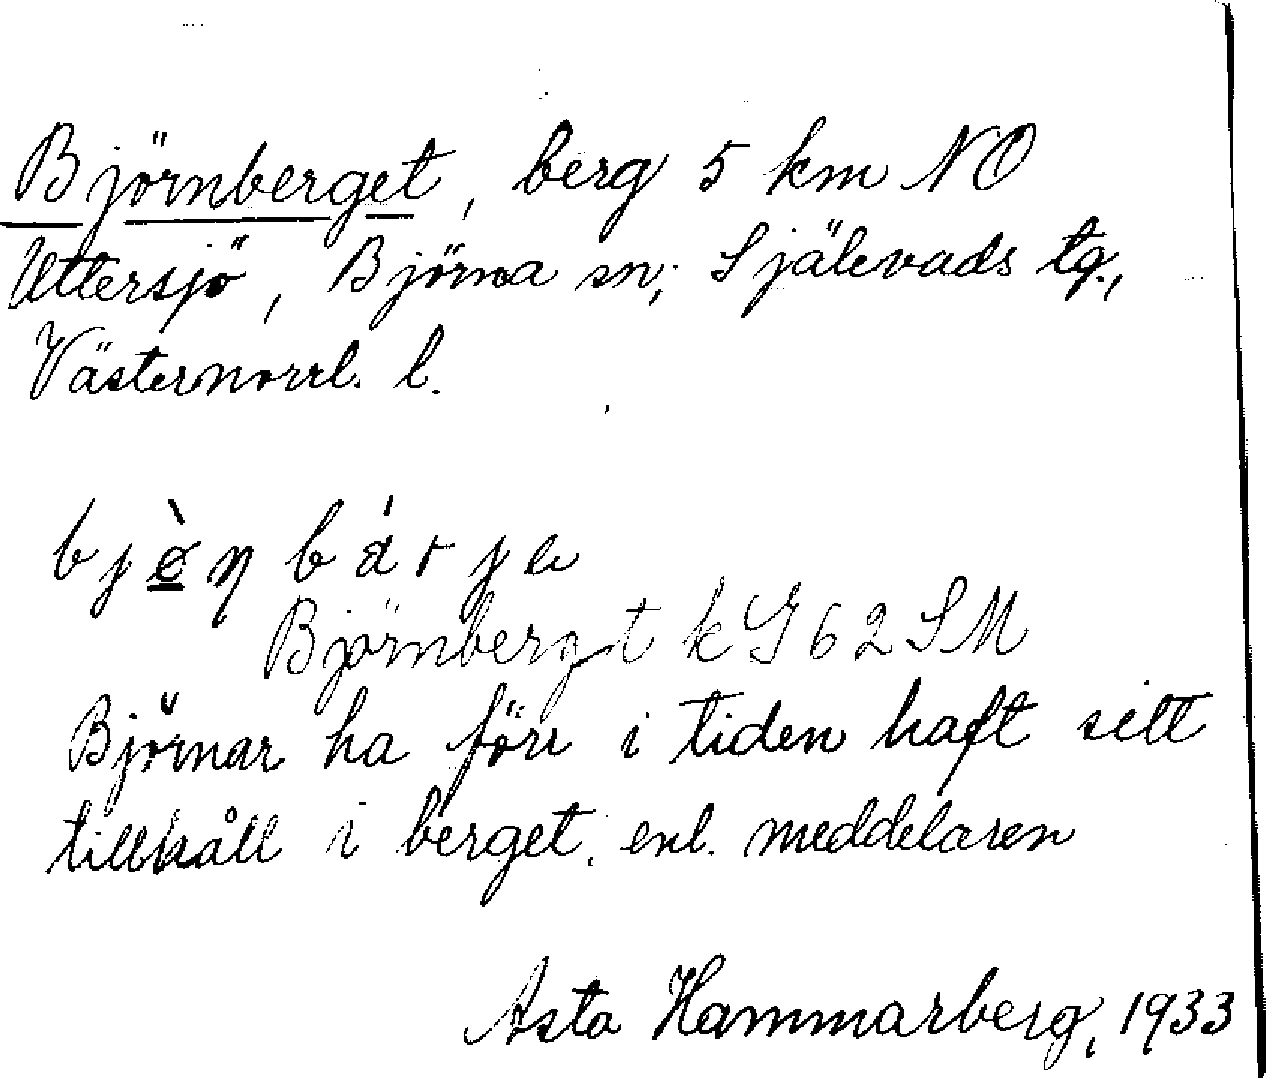 Björnberget, berg 5 km NO
Uttersjö, Björna sn; Själevads tg.,
Västernorrl. l.
bjø̀ṇbárje
Björnbergt k G 62 SM
Björnar ha förr i tiden haft sitt
tillhåll i berget. enl. meddelaren
Asta Hammarberg, 1933